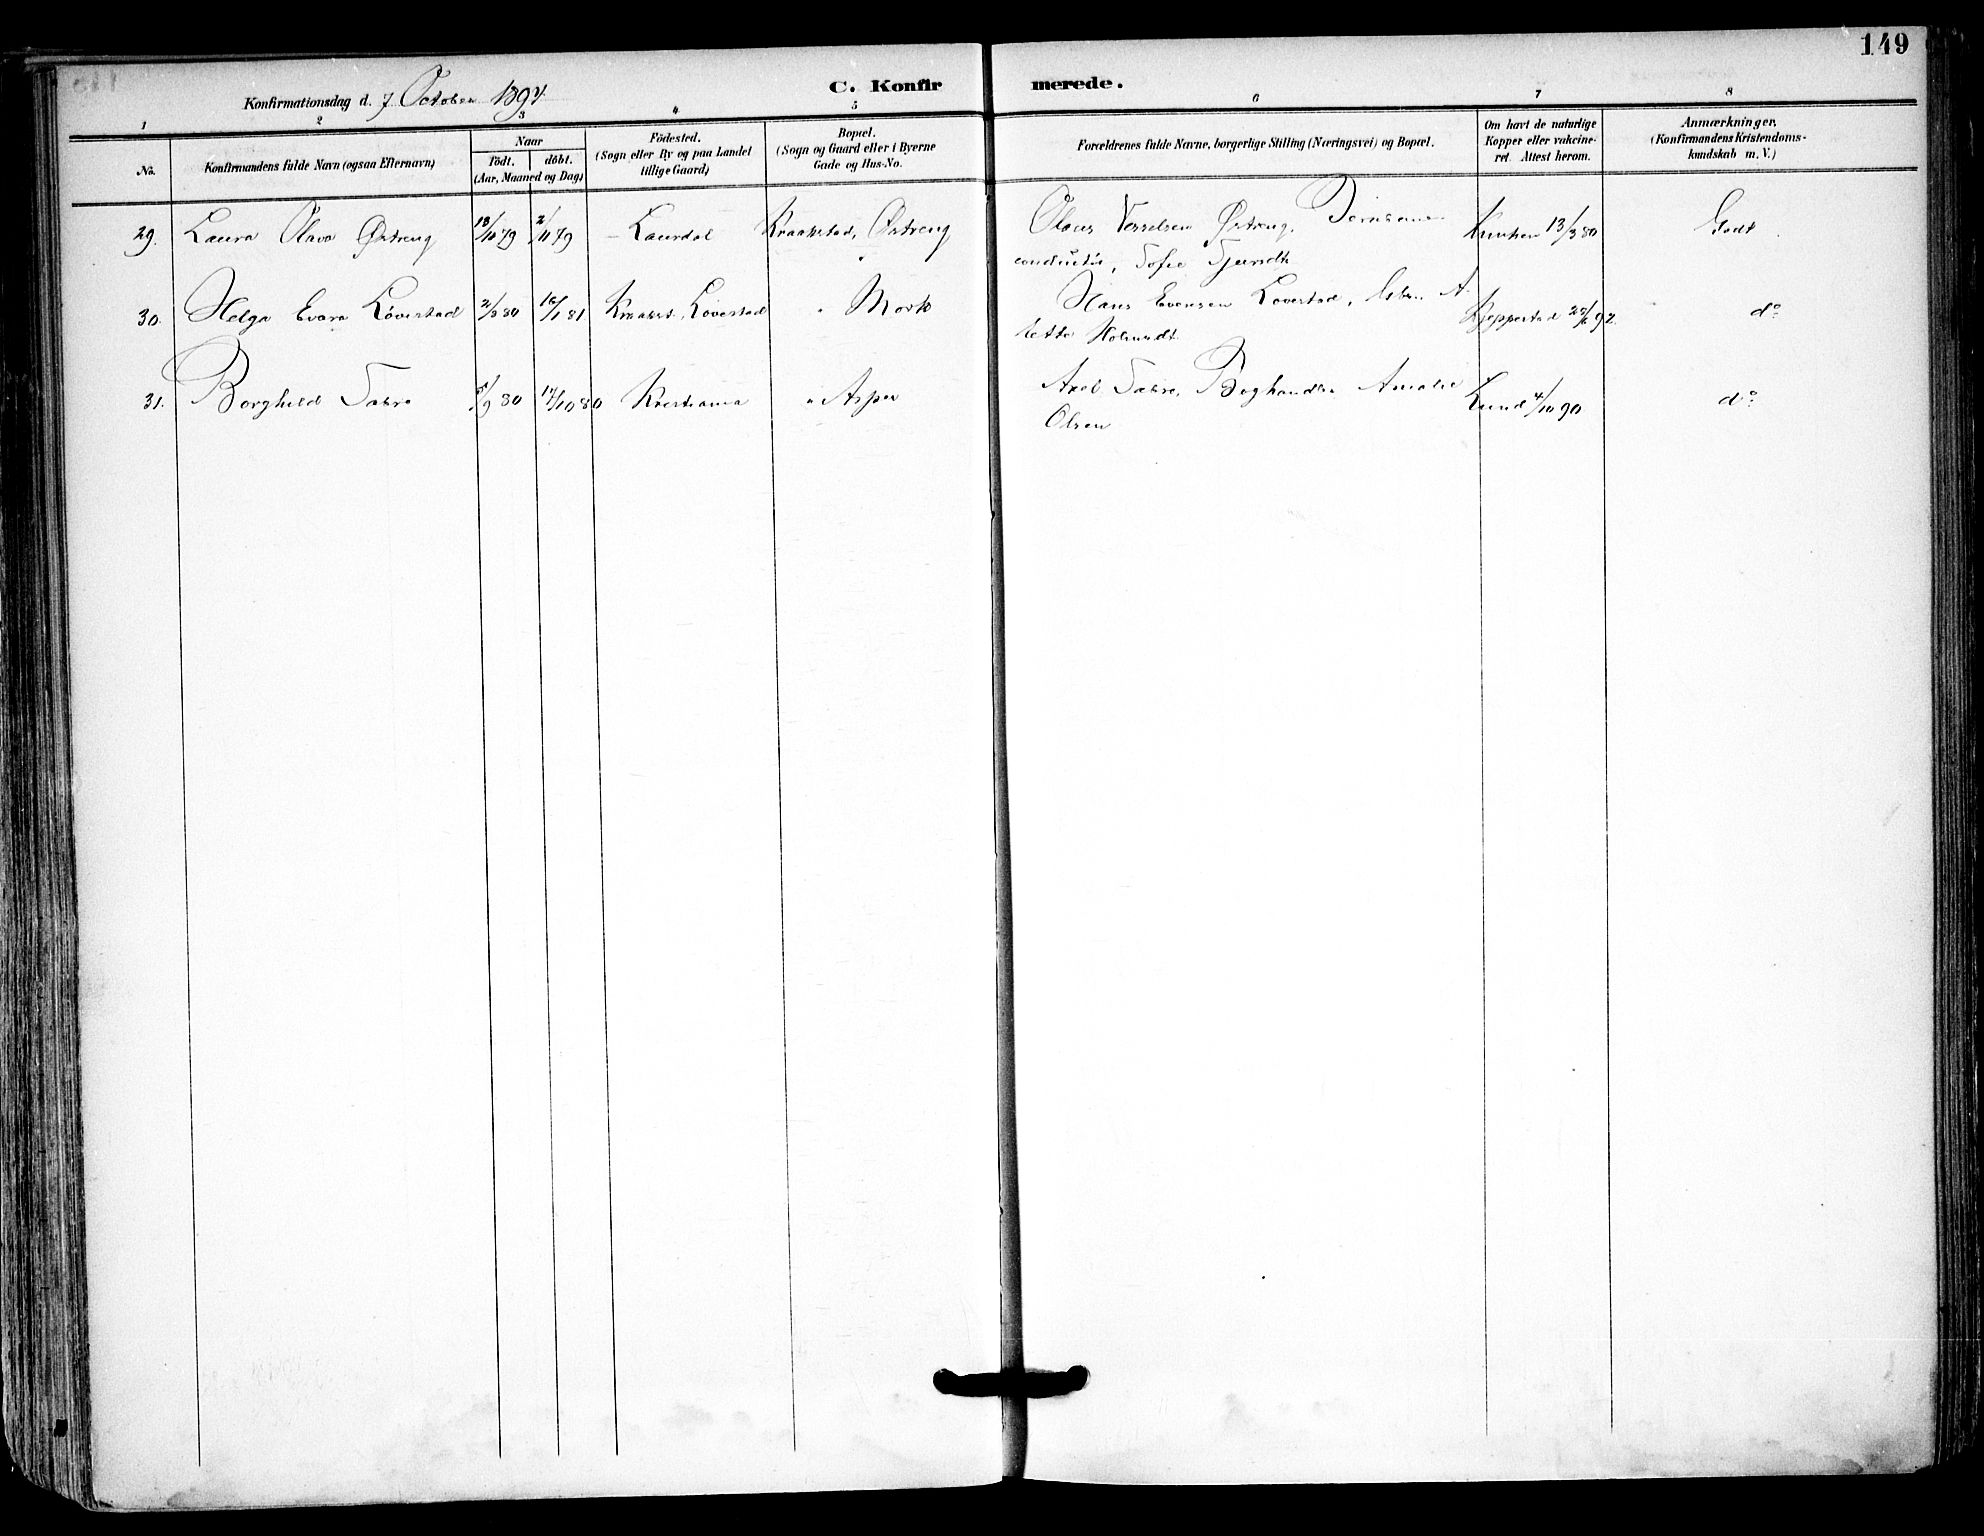 149
Konfirmationsdag d. 7 October 1894.
C. Konfirmerede.
1 2 3 4 5 6 7 8
No.
Konfirmandens fulde Navn (ogsaa Efternavn)
Naar
Födt. döbt.
(Aar, Maaned og Dag)
Födested.
(Sogn eller By og paa Landet
tillige Gaard)
Bopæl.
(Sogn og Gaard eller i Byerne
Gade og Hus-No.
Forældrenes fulde Navne, borgerlige Stilling (Næringsvei) og Bopæl.
Om havt de naturlige
Kopper eller vakcine-
ret. Attest herom.
Anmærkninger,
(Konfirmandens Kristendoms-
kundskab m. V.)
29. Laura Olava Østreng 18/10 79 2/11 79 Laurdal Kraakstad, Østreng Olaus Østreng, 13/3 80 Godt
conductør, Sofie
30. Helga Løvestad 2/9 80 16/1 81 Kraakst. Løvestad " Mork Hans Evensen Løvestad, A
lette Kjeppestad do
31. Borghild 5/9 80 17/10 80 Kristiania " Asper Axel Boghandler Amalie Lund 4/10 90 do
Olsen